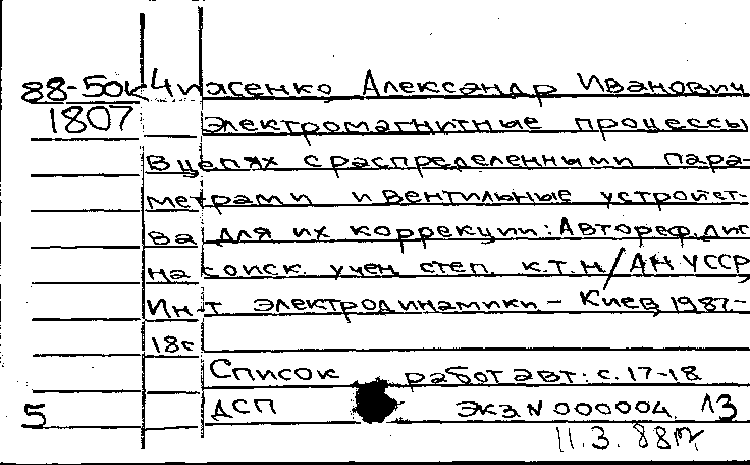 88-50к Чиженко Александр Иванович
1807 Электромагнитные процессы
в цепях с распределенными пара-
метрами и вентильные устройст-
ва для их коррекции: Автореф. дис
на соиск. учен. степ. к.т.н/АН УССР
Ин-т электродинамики - Киев, 1987-
18с
Список работ авт: с.17-18
5 ДСП Экз N 000004. 13
11.3.88